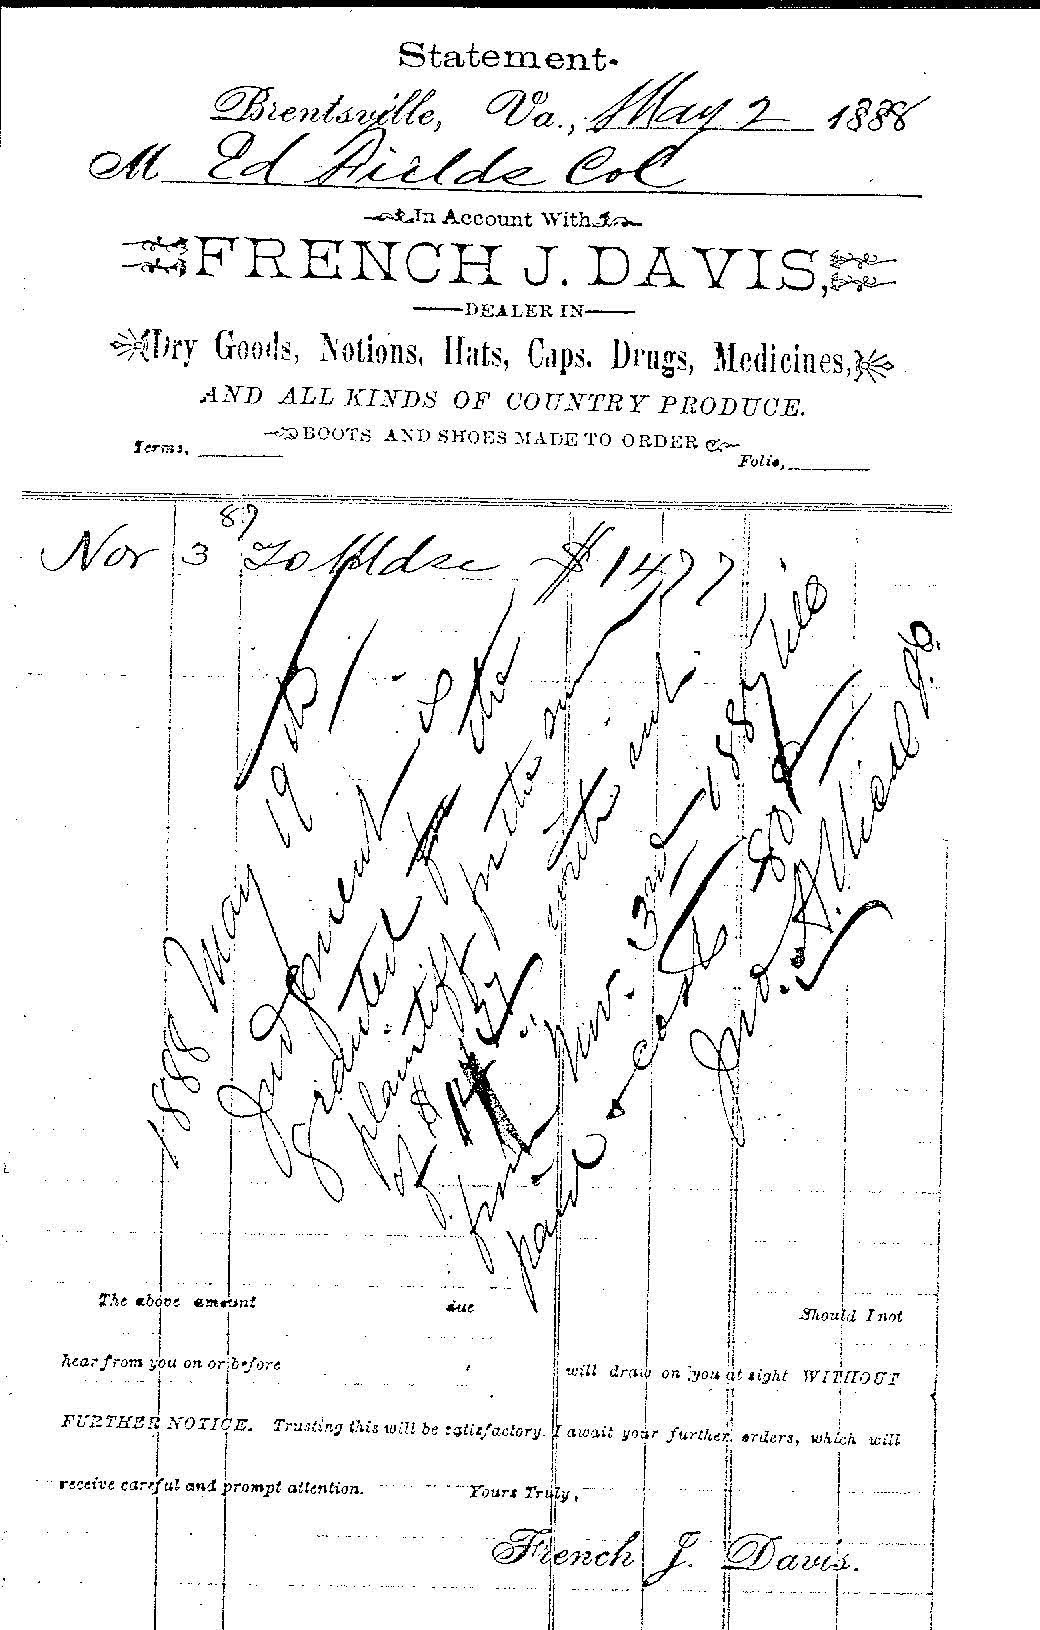 Statement.
Brentsville, Va., May 2 1888
M Ed Fields Col
In Account With
FRENCH J. DAVIS,
DEALER IN
Dry Goods, Notions, Hats, Caps, Drugs, Medicines,
AND ALL KINDS OF COUNTRY PRODUCE.
BOOTS AND SHOES MADE TO ORDER
Terms, Folio,
87
Nov 3 To Mdse $ 14 77
1888 May 19th
Judgment is
granted for the
plaintiff for the sum
of $ 14 77 with int.
from Nov. 3rd 1887 till
paid & costs 80
Jno. A.
The above amount due Should I not
hear from you on or before , will draw on you at sight WITHOUT
FURTHER NOTICE. Trusting this will be satisfactory. I await your further orders, which will
receive careful and prompt attention. Yours Truly,
French J. Davis.